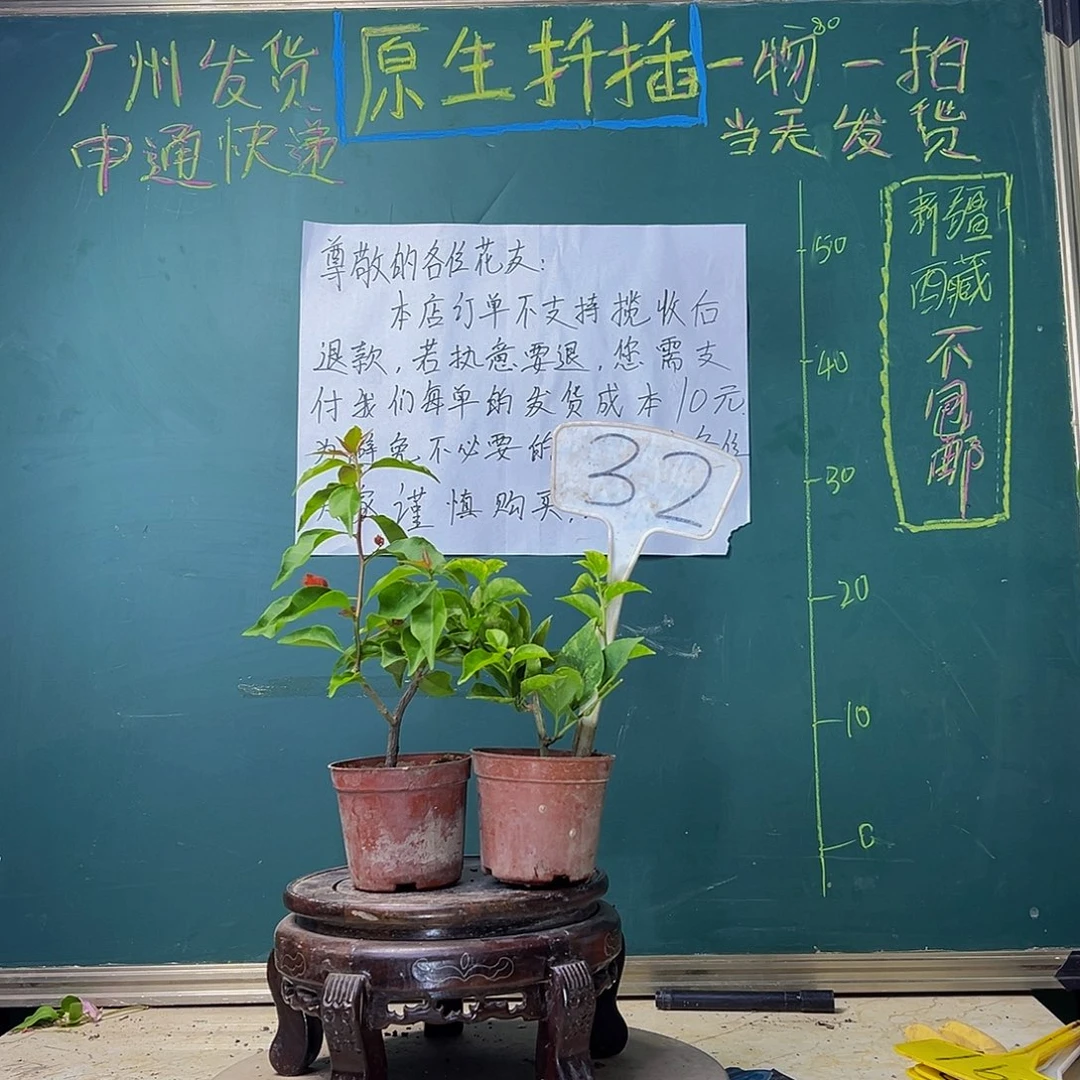 广州发货
原生扦插
一物一拍
80
申通快递
当天发货
尊敬的各位花友：
本店订单不支持揽收后
退款，若执意要退，您需支
付我们每单的发货成本10元.
为避免不必要的
谨慎购买
32
50
40
30
20
10
0
新疆
西藏
不
包
邮